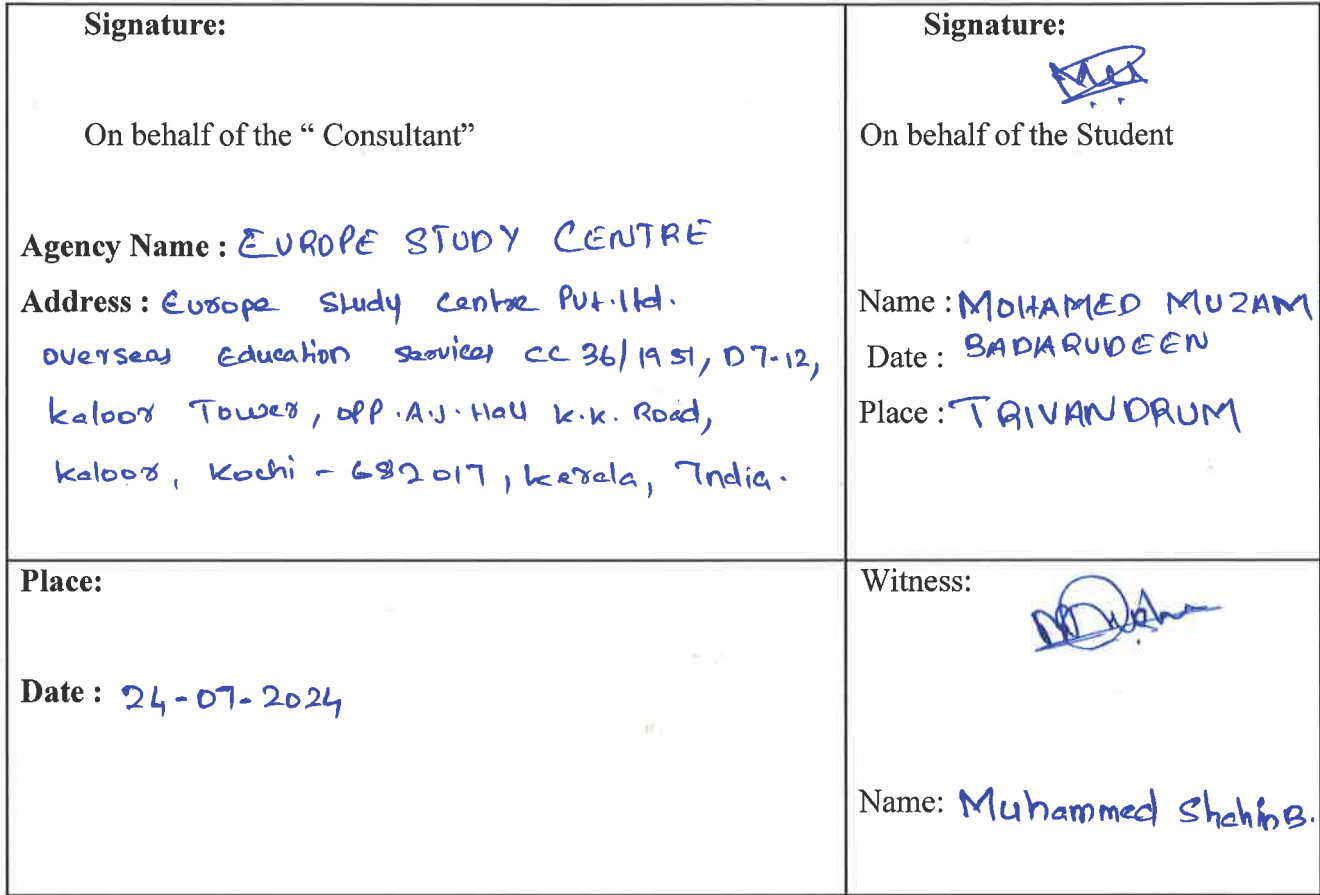 Signature:
On behalf of the “ Consultant”
Agency Name : EUROPE STUDY CENTRE
Address : Europe Study Centre Pvt.ltd.
overseas Education services CC 36/1951, D7-12,
kaloor Tower, opp.A.J.Hall K.K. Road,
kaloor, Kochi - 682017, kerala, India.
Signature:
On behalf of the Student
Name : MOHAMED MUZAM
BADARUDEEN
Date :
Place : TRIVANDRUM
Place:
Date : 24-07-2024
Witness:
Name: Muhammed Shahin B.